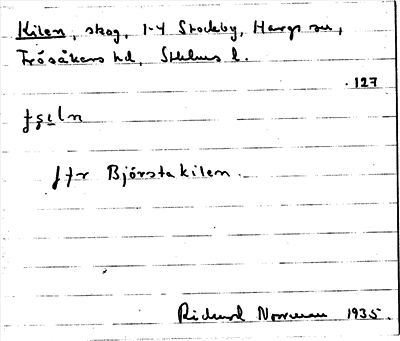 Kilen, skog, 1-4 Stockby, Hargs sn,
Frösåkers hd, Sthlms l.
127
jfr Björstakilen.
Richard Norrman 1935.